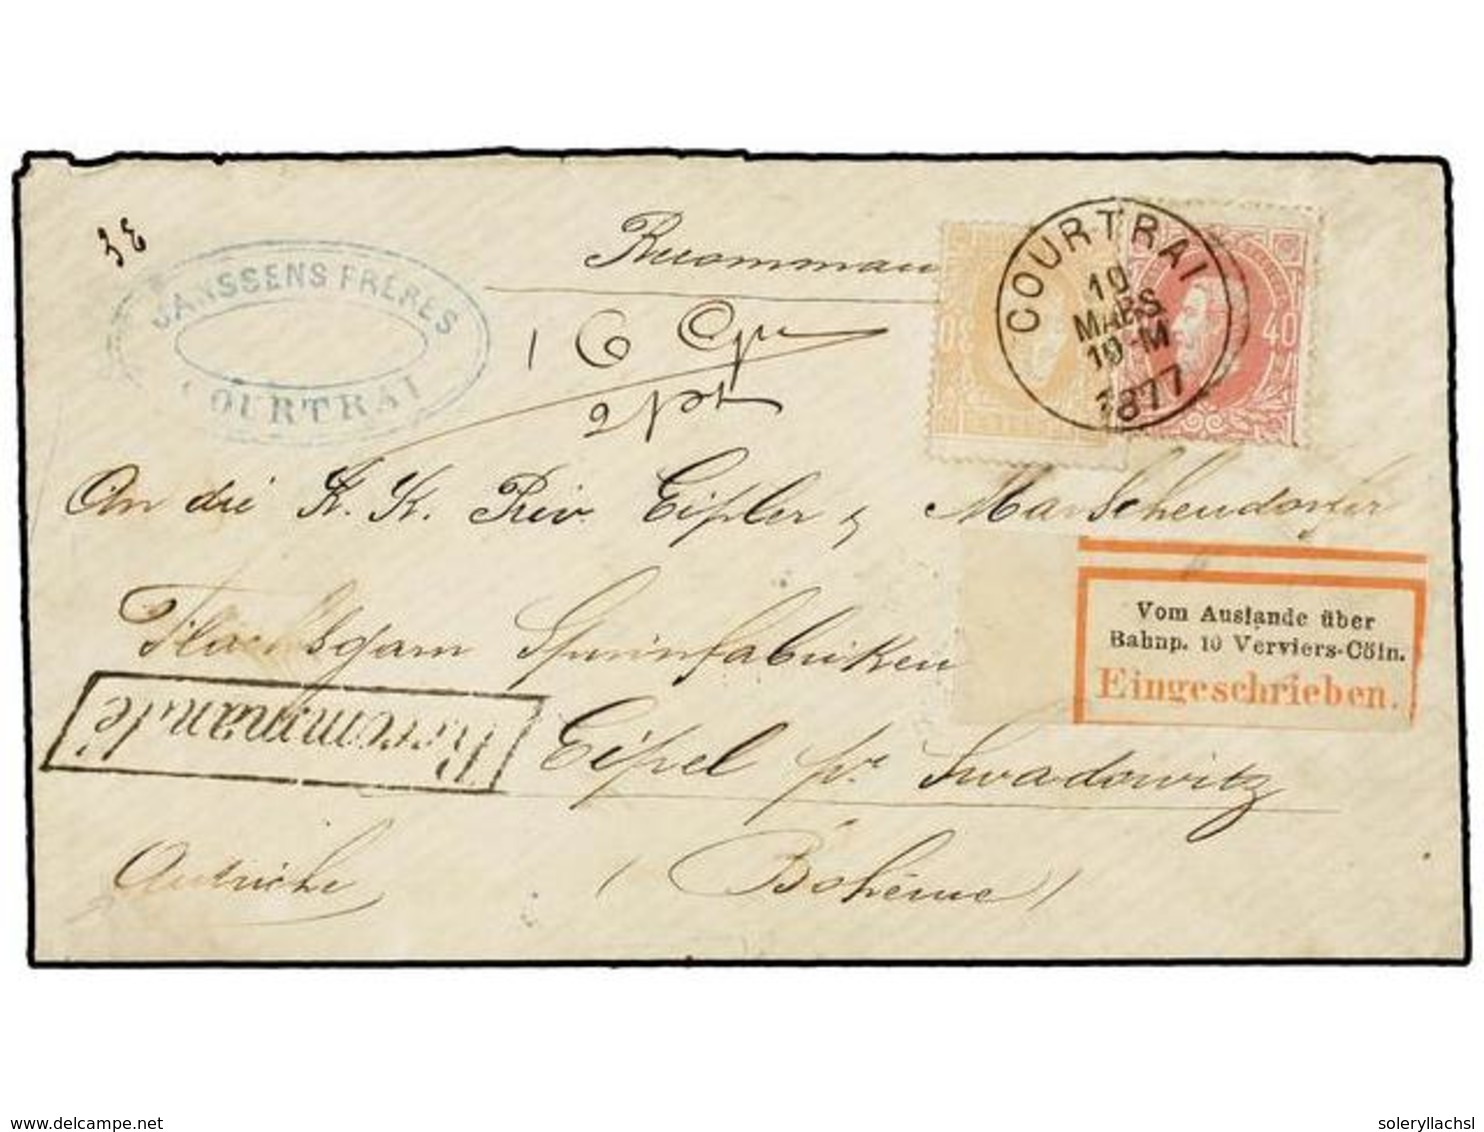 JANSSENS FRÈRES
COURTRAI
Recomman
16
COURTRAI
10
MARS
10-M
1877
30
40
An die K. K. Priv. Eipler & Marschendorfer
Flachsgarn Spinnfabriken
Eipel pr Swadowitz
Autriche (Bohême)
Recommandé
Vom Auslande über
Bahnp. 10 Verviers-Cöln.
Eingeschrieben.
delcampe.net
solerylIachsl